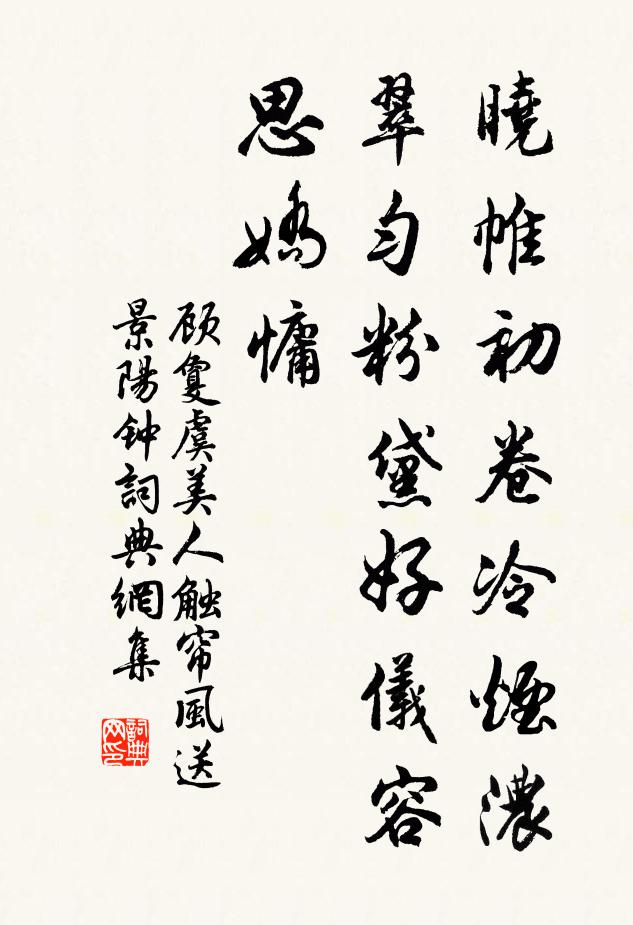 曉帷初卷冷煙濃
翠勻粉黛好儀容
思嬌慵
顾敻虞美人触帘風送
景陽钟詞典網集
詞典网印